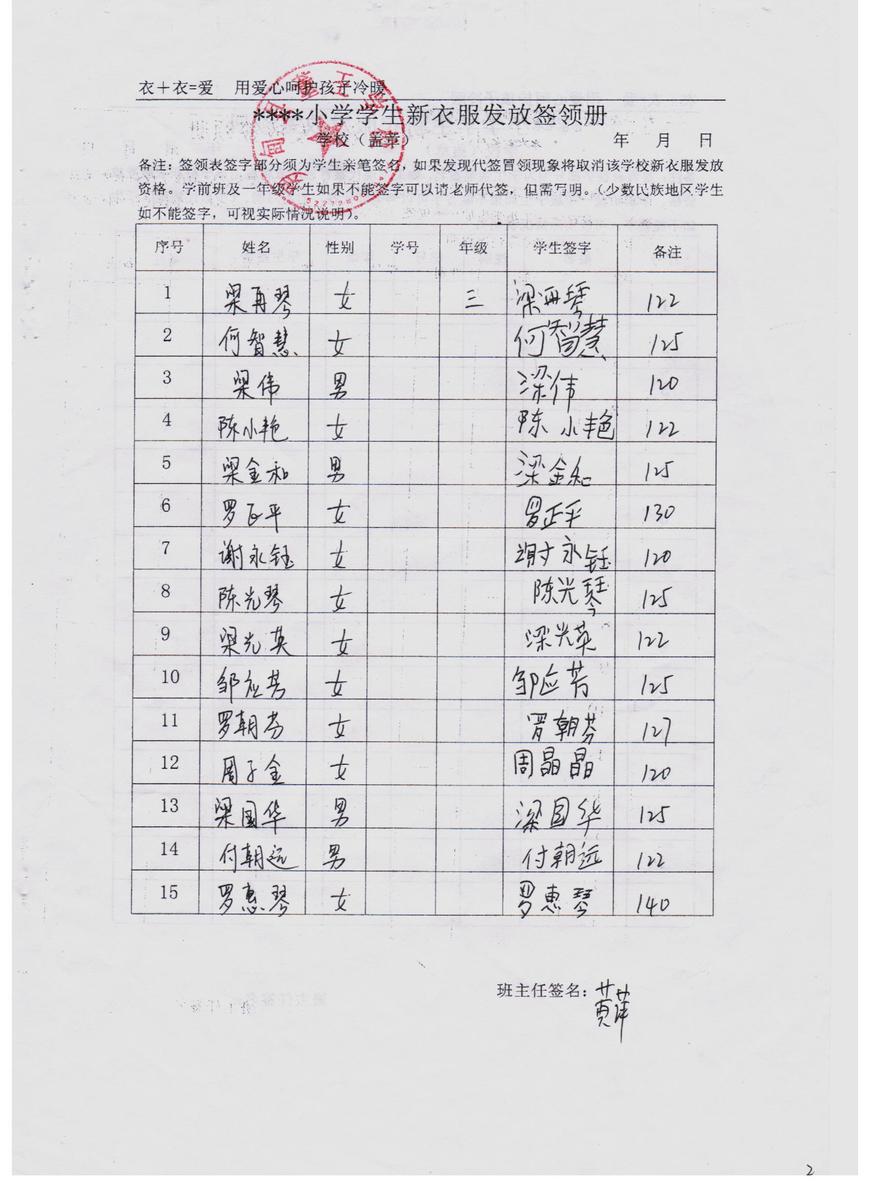 衣+衣=爱 用爱心呵护孩子冷暖
****小学学生新衣服发放签领册
学校（盖章） 年 月 日
备注：签领表签字部分须为学生亲笔签名，如果发现代签冒领现象将取消该学校新衣服发放
资格。学前班及一年级学生如果不能签字可以请老师代签，但需写明。（少数民族地区学生
如不能签字，可视实际情况说明）。
序号 姓名 性别 学号 年级 学生签字 备注
1 梁再琴 女 三 梁再琴 122
2 何智慧 女 何智慧 125
3 梁伟 男 梁伟 120
4 陈小艳 女 陈小艳 122
5 梁金和 男 梁金和 125
6 罗正平 女 罗正平 130
7 谢永钰 女 谢永钰 120
8 陈光琴 女 陈光琴 125
9 梁光英 女 梁光英 122
10 邹应芳 女 邹应芳 125
11 罗朝芬 女 罗朝芬 127
12 周子金 女 周晶晶 120
13 梁国华 男 梁国华 125
14 付朝远 男 付朝远 122
15 罗惠琴 女 罗惠琴 140
班主任签名：黄萍
2